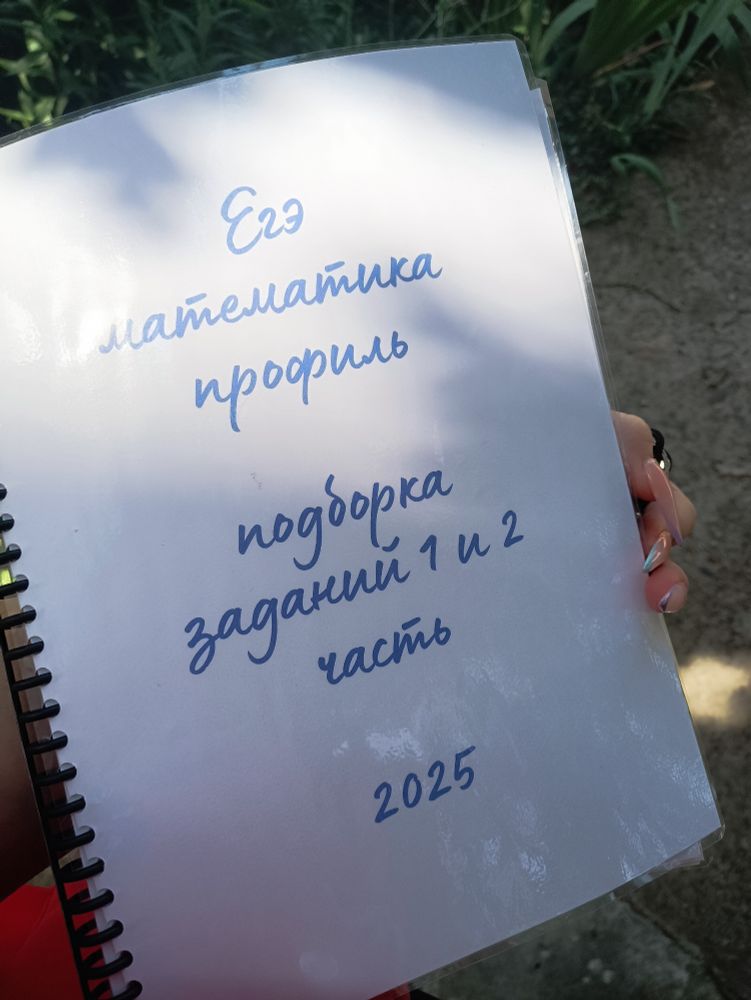 Егэ
математика
профиль
подборка
заданий 1 и 2
часть
2025